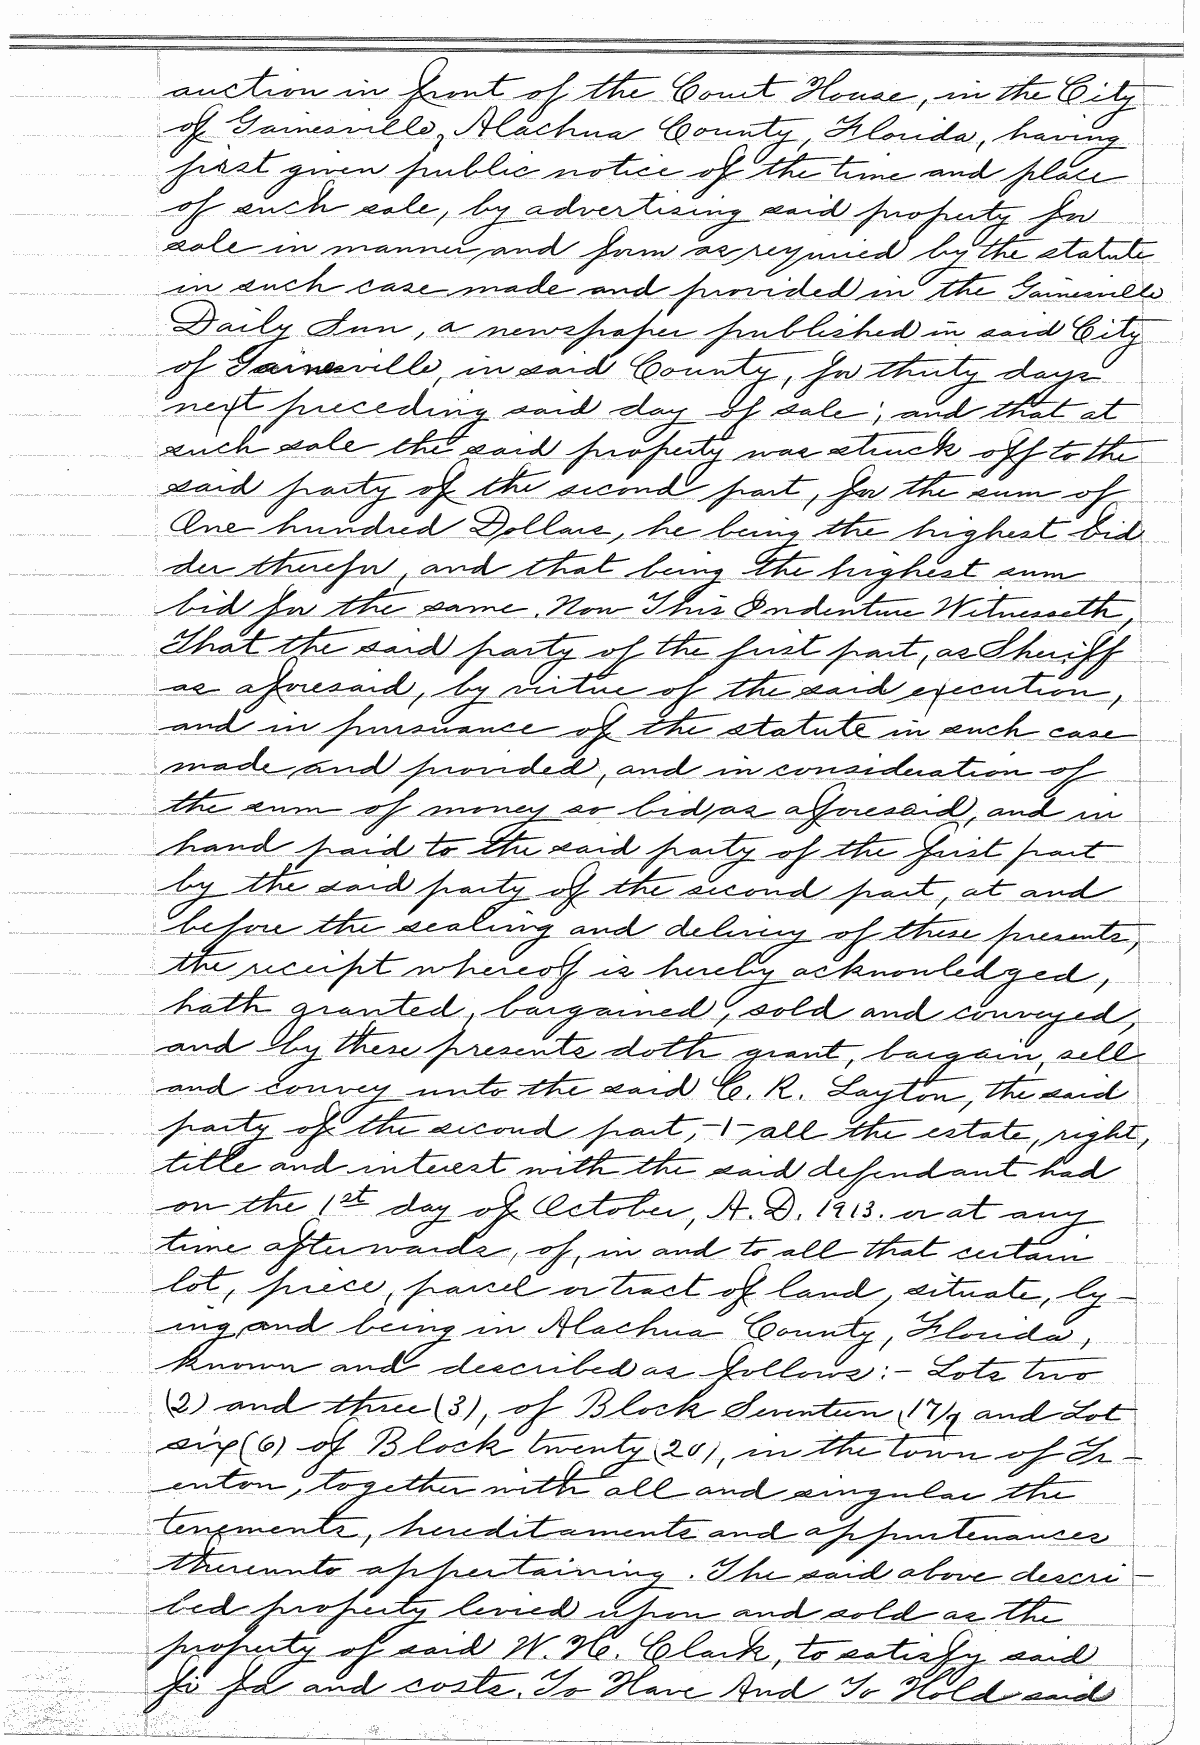 auction in front of the Court House, in the City
of Gainesville, Alachua County, Florida, having
first given public notice of the time and place
of such sale, by advertising said property for
sale in manner and form as required by the statute
in such case made and provided in the Gainesville
Daily Sun, a newspaper published in said City
of Gainesville, in said County, for thirty days
next preceding said day of sale; and that at
such sale the said property was struck off to the
said party of the second part, for the sum of
One hundred Dollars, he being the highest bid
der therefor, and that being the highest sum
bid for the same. Now This Indenture Witnesseth,
That the said party of the first part, as Sheriff
as aforesaid, by virtue of the said execution,
and in pursuance of the statute in such case
made and provided, and in consideration of
the sum of money so bid, as aforesaid, and in
hand paid to the said party of the first part
by the said party of the second part, at and
before the sealing and delivery of these presents,
the receipt whereof is hereby acknowledged,
hath granted, bargained, sold and conveyed,
and by these presents doth grant, bargain, sell
and convey unto the said C. R. Layton, the said
party of the second part, -1- all the estate, right,
title and interest with the said defendant had
on the 1st day of October, A. D. 1913. or at any
time afterwards, of, in and to all that certain
lot, piece, parcel or tract of land, situate, ly-
ing and being in Alachua County, Florida,
known and described as follows:- Lots two
(2) and three (3), of Block Seventeen (17), and Lot
six (6) of Block twenty (20), in the town of Tr-
enton, together with all and singular the
tenements, hereditaments and appurtenances
thereunto appertaining. The said above descri-
bed property levied upon and sold as the
property of said W. H. Clark, to satisfy said
fi fa and costs. To Have And To Hold said